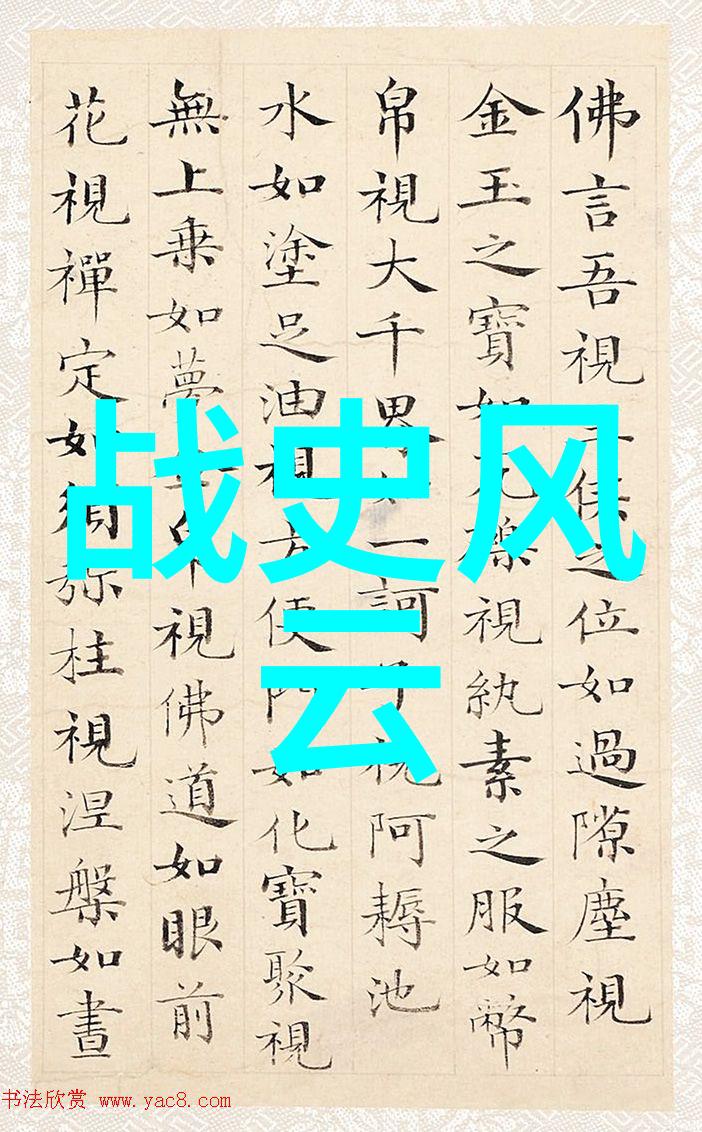 佛言吾視侯之位如過隙塵視
金玉之寶如瓦礫視紈素之服如幣
帛視大千界如一訶子視阿耨池
水如塗足油視方便門如化寶聚視
無上乗如夢帛視佛道如眼前
花視禪定如須弥柱視涅槃如晝
战史风
云
书法欣赏 www.yac8.com